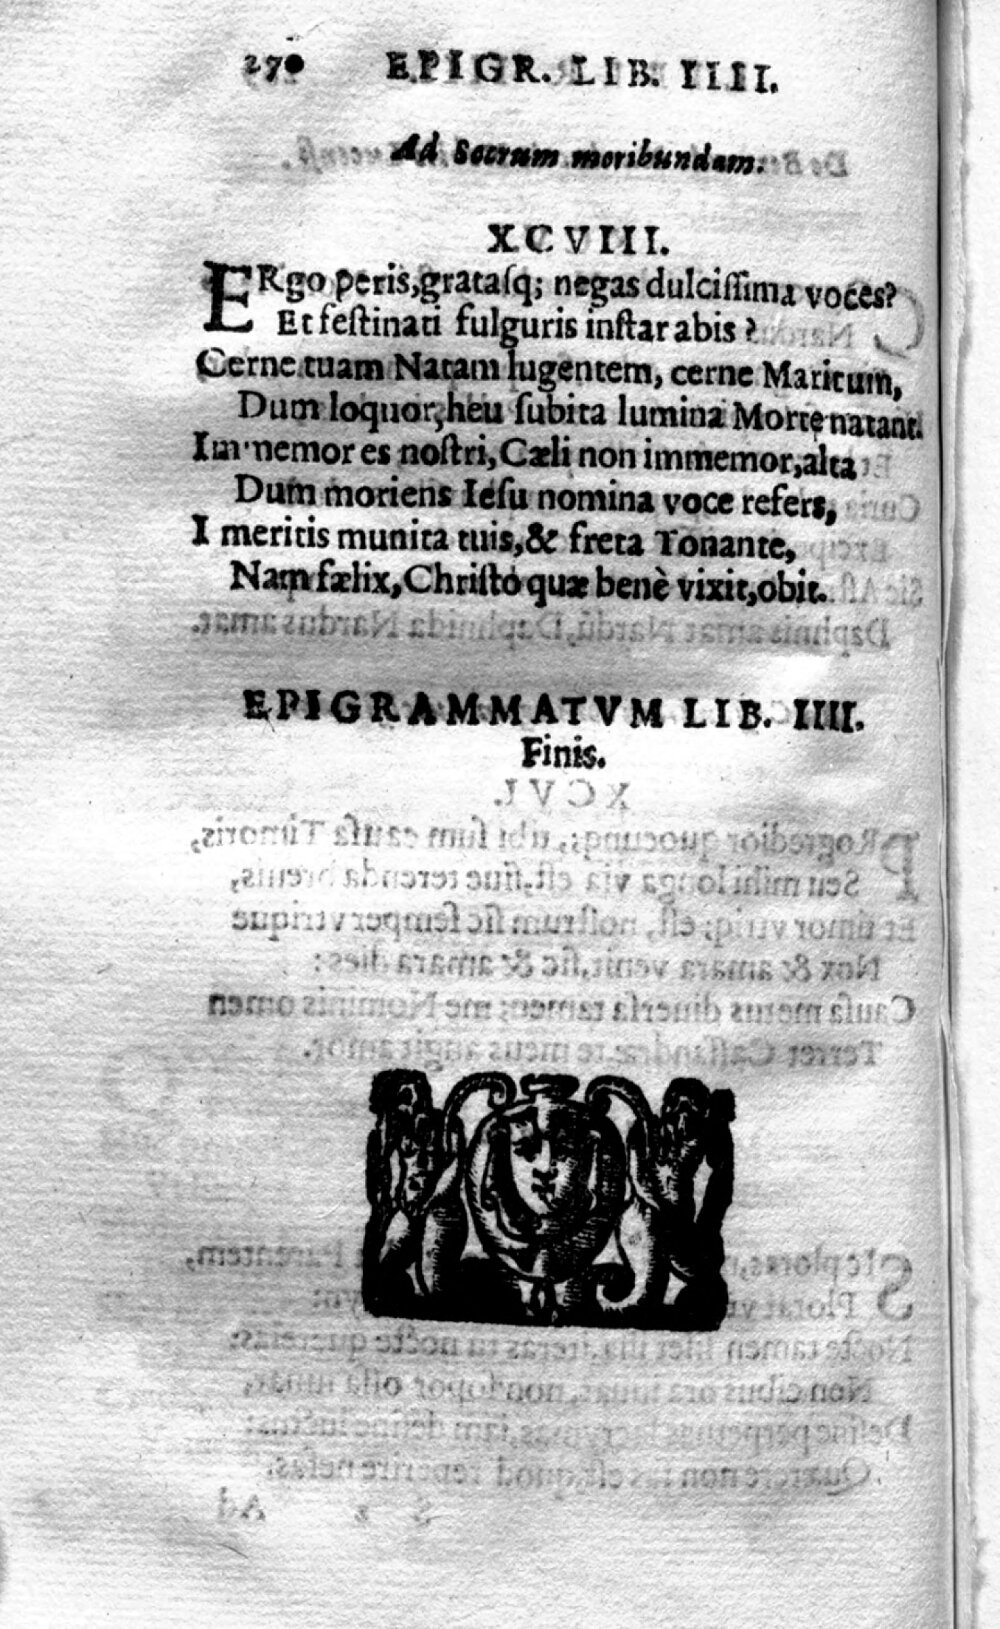 270 EPIGR. LIB. IIII.
Ad Socrum moribundam.
XCVIII.
ERgo peris, grataſq; negas dulciſſima voces?
Et feſtinati fulguris inſtar abis?
Cerne tuam Natam lugentem, cerne Maritum,
Dum loquor, heu ſubita lumina Morte natant.
Immemor es noſtri, Cæli non immemor, alta
Dum moriens Ieſu nomina voce refers,
I meritis munita tuis, & freta Tonante,
Nam fælix, Chriſto quæ benè vixit, obit.
EPIGRAMMATVM LIB. IIII.
Finis.